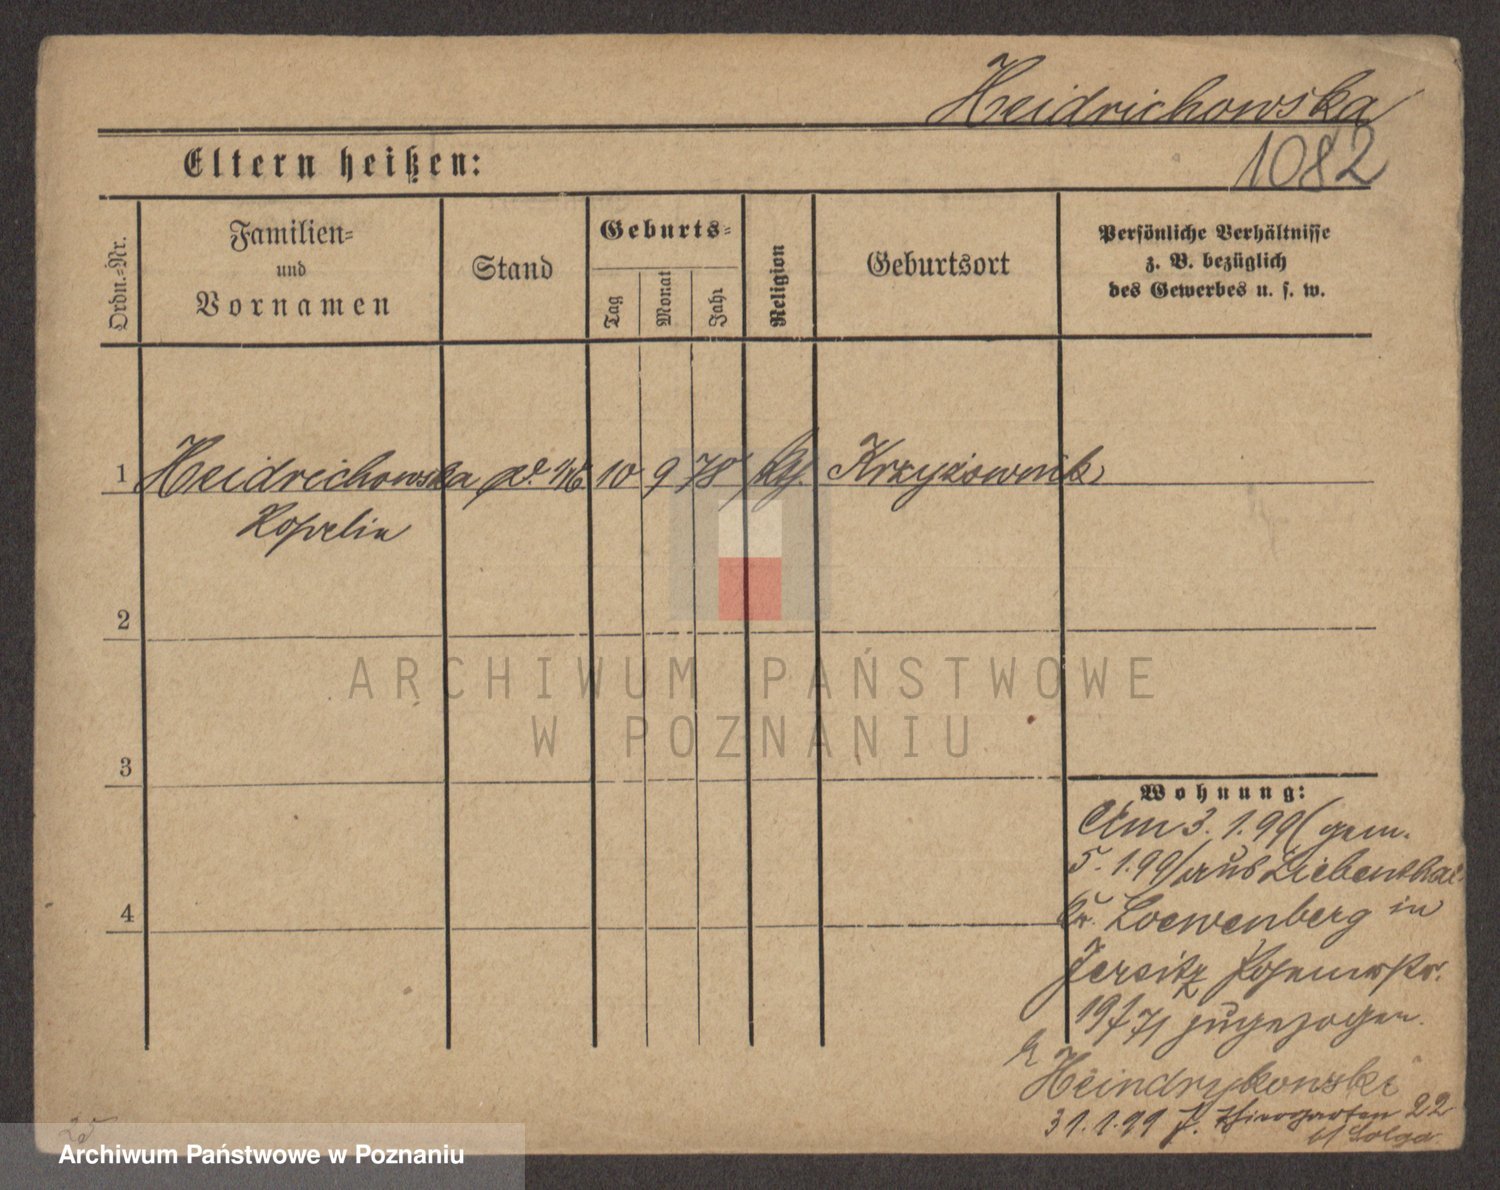 Heidrichowska
1082
Eltern heißen:
Ordn.-Nr.
Familien-
und
Vornamen
Stand
Geburts-
Tag
Monat
Jahr
Religion
Geburtsort
Persönliche Verhältnisse
z. B. bezüglich
des Gewerbes u. s. w.
1 Heidrichowska 10 9 78 Krzyżownik
2
3
4
ARCHIWUM PAŃSTWOWE
W POZNANIU
Wohnung:
Am 3. 1. 99 (gem.
5. 1. 99) aus Liebenthal
Kr. Loewenberg in
Jersitz Posenerstr.
zugezogen.
Heindrykowski
31.1.99 P. Thiergarten 22
Archiwum Państwowe w Poznaniu